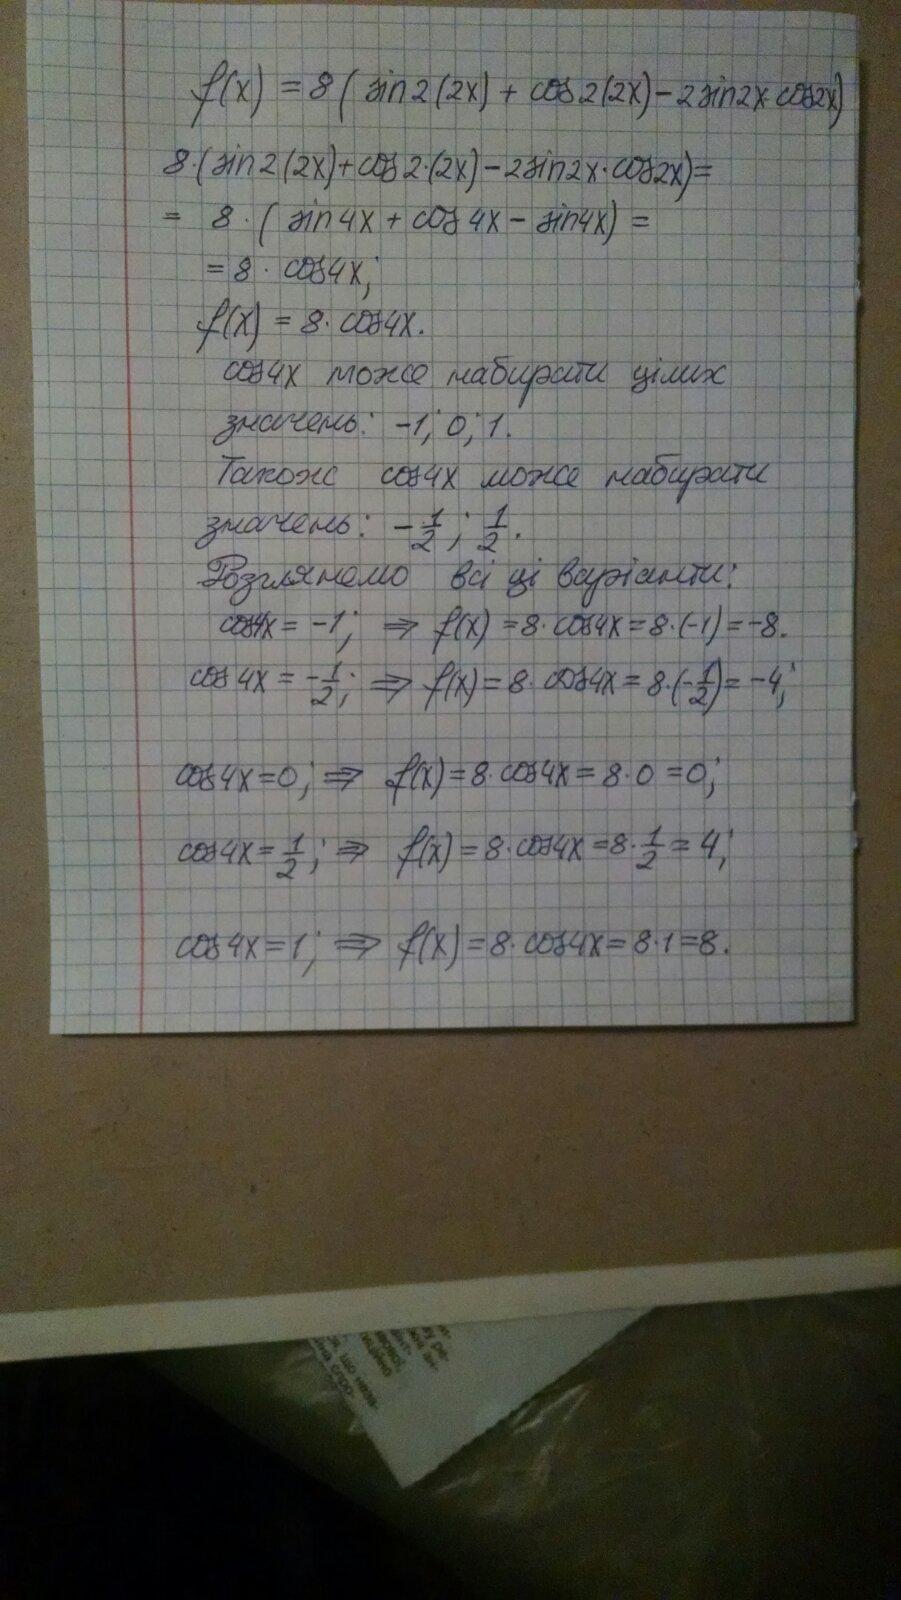 f(x) = 8 ( sin2(2x) + cos2(2x) - 2sin2x cos2x)
8·(sin2(2x)+cos2·(2x) - 2sin2x·cos2x)=
= 8 · ( sin4x + cos4x - sin4x) =
= 8 · cos4x;
f(x) = 8 · cos4x.
cos4x може набирати цілих
значень: -1; 0; 1.
Також cos4x може набирати
значень: -1/2; 1/2.
Розглянемо всі ці варіанти:
cos4x = -1; ⇒ f(x) = 8 · cos4x = 8·(-1) = -8.
cos4x = -1/2; ⇒ f(x) = 8 · cos4x = 8·(-1/2) = -4;
cos4x=0; ⇒ f(x) = 8·cos4x = 8·0 = 0;
cos4x = 1/2; ⇒ f(x) = 8·cos4x = 8·1/2 = 4;
cos4x = 1; ⇒ f(x) = 8· cos4x = 8·1 = 8.